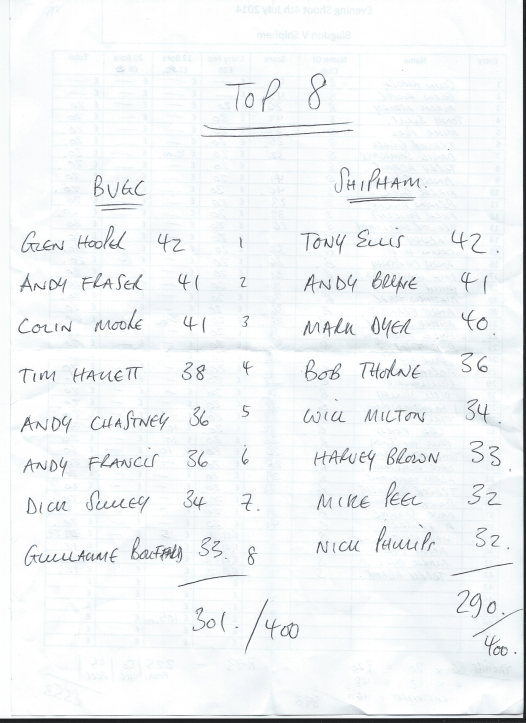 TOP 8
BUGC SHIPHAM.
GLEN HOOPER 42 1 TONY ELLIS 42.
ANDY FRASER 41 2 ANDY BRYNE 41
COLIN MOORE 41 3 MARK DYER 40.
TIM HALLETT 38 4 BOB THORNE 36
ANDY CHASTNEY 36 5 WILL MILTON 34.
ANDY FRANCIS 36 6 HARVEY BROWN 33
DICK 34 7. MIKE PEEL 32
GUILLAUME 33. 8 NICK PHILLIPS 32.
301. /400 290. /400.